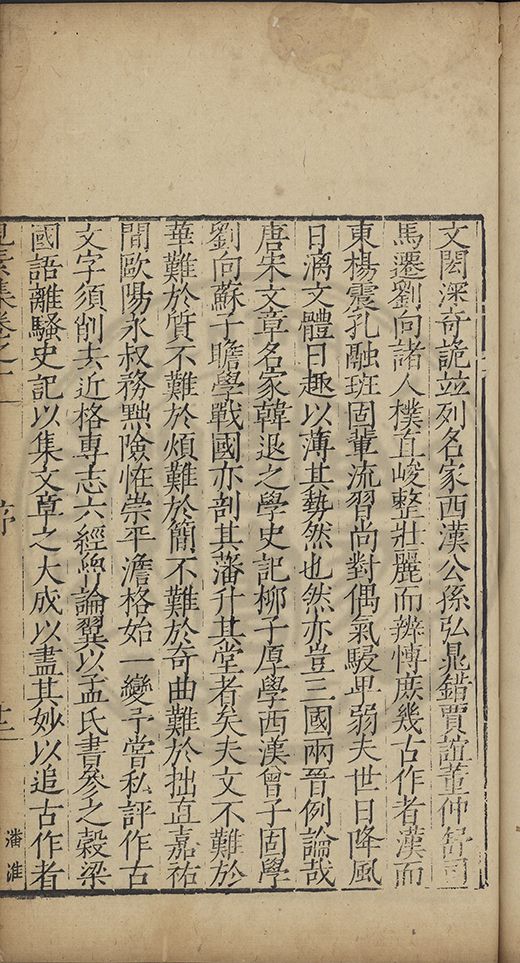 文閎深奇詭並列名家西漢公孫弘晁錯賈誼董仲舒司
馬遷劉向諸人樸直峻整壯麗而辨愽庶幾古作者漢而
東楊震孔融班固輩流習尚對偶氣駸卑弱夫世日降風
日漓文體日趣以薄其勢然也然亦豈三國兩晉例論哉
唐宋文章名家韓退之學史記柳子厚學西漢曾子固學
劉向蘇子瞻學戰國亦剖其藩升其堂者矣夫文不難於
華難於質不難於煩難於簡不難於奇曲難於拙直嘉祐
間歐陽永叔務黜險恠崇平澹格始一變予嘗私評作古
文字須削去近格專志六經魯論翼以孟氏書參之穀梁
國語離騷史記以集文章之大成以盡其妙以追古作者
見素集卷之十一
序
十二
潘淮